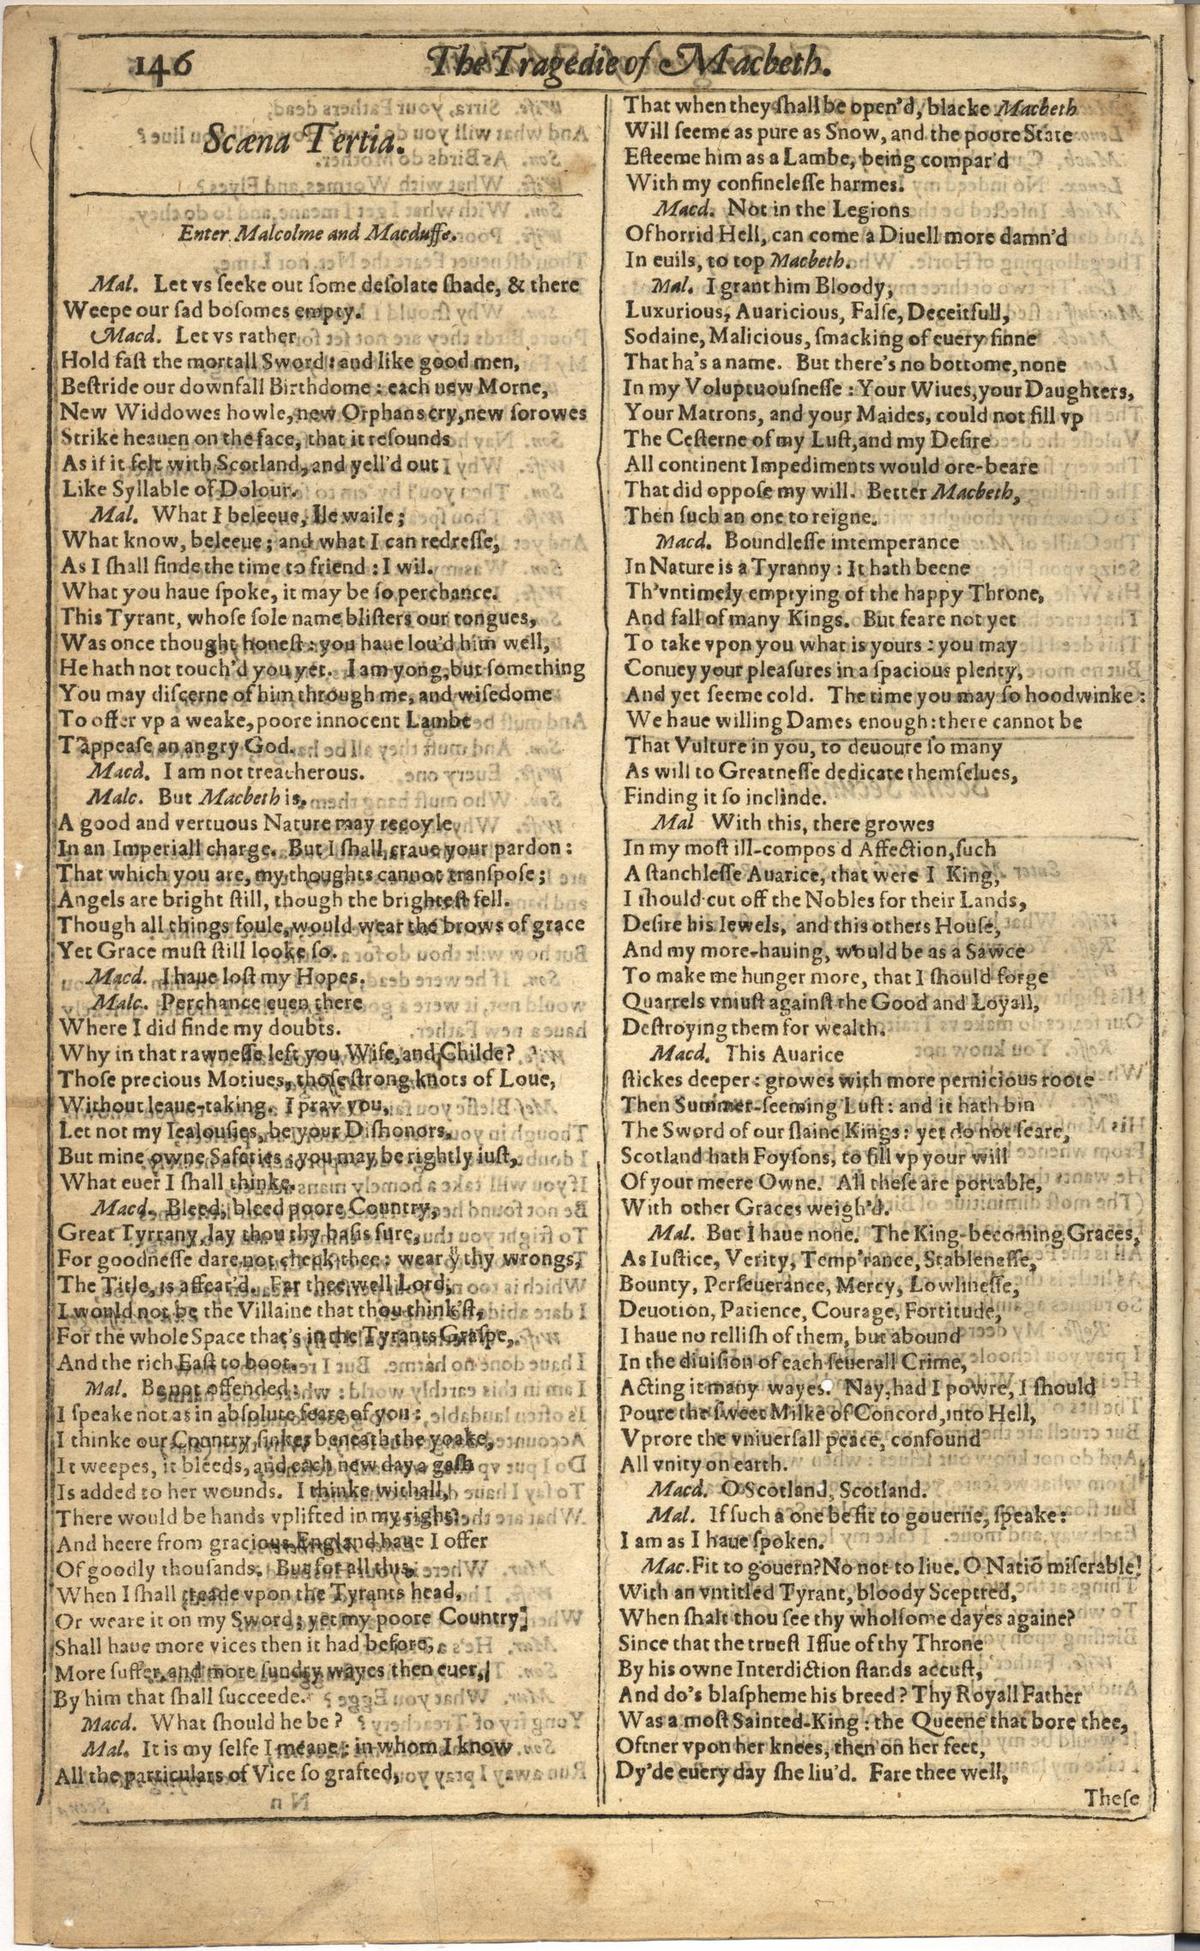 146
The Tragedie of Macbeth.
Scæna Tertia.
Enter Malcolme and Macduffe.
Mal. Let vs ſeeke out ſome deſolate ſhade, & there
Weepe our ſad boſomes empty.
Macd. Let vs rather
Hold faſt the mortall Sword: and like good men,
Beſtride our downfall Birthdome: each new Morne,
New Widdowes howle, new Orphans cry, new ſorowes
Strike heauen on the face, that it reſounds
As if it felt with Scotland, and yell'd out
Like Syllable of Dolour.
Mal. What I beleeue, Ile waile;
What know, beleeue; and what I can redreſſe,
As I ſhall finde the time to friend: I wil.
What you haue ſpoke, it may be ſo perchance.
This Tyrant, whoſe ſole name bliſters our tongues,
Was once thought honeſt: you haue lou'd him well,
He hath not touch'd you yet. I am yong, but ſomething
You may diſcerne of him through me, and wiſedome
To offer vp a weake, poore innocent Lambe
T'appeaſe an angry God.
Macd. I am not treacherous.
Malc. But Macbeth is.
A good and vertuous Nature may recoyle
In an Imperiall charge. But I ſhall craue your pardon:
That which you are, my thoughts cannot tranſpoſe;
Angels are bright ſtill, though the brighteſt fell.
Though all things foule, would wear the brows of grace
Yet Grace muſt ſtill looke ſo.
Macd. I haue loſt my Hopes.
Malc. Perchance euen there
Where I did finde my doubts.
Why in that rawneſſe left you Wife, and Childe?
Thoſe precious Motiues, thoſe ſtrong knots of Loue,
Without leaue-taking. I pray you,
Let not my Iealouſies, be your Diſhonors,
But mine owne Safeties: you may be rightly iuſt,
What euer I ſhall thinke.
Macd. Bleed, bleed poore Country,
Great Tyrrany, lay thou thy baſis ſure,
For goodneſſe dare not check thee: wear yͧ thy wrongs,
The Title, is affear'd. Far thee well Lord,
I would not be the Villaine that thou think'ſt,
For the whole Space that's in the Tyrants Graſpe,
And the rich Eaſt to boot.
Mal. Be not offended:
I ſpeake not as in abſolute feare of you:
I thinke our Country ſinkes beneath the yoake,
It weepes, it bleeds, and each new day a gaſh
Is added to her wounds. I thinke withall,
There would be hands vplifted in my right:
And heere from gracious England haue I offer
Of goodly thouſands. But for all this,
When I ſhall treade vpon the Tyrants head,
Or weare it on my Sword; yet my poore Country
Shall haue more vices then it had before,
More ſuffer, and more ſundry wayes then euer,
By him that ſhall ſucceede.
Macd. What ſhould he be?
Mal. It is my ſelfe I meane: in whom I know
All the particulars of Vice ſo grafted,
That when they ſhall be open'd, blacke Macbeth
Will ſeeme as pure as Snow, and the poore State
Eſteeme him as a Lambe, being compar'd
With my confineleſſe harmes.
Macd. Not in the Legions
Of horrid Hell, can come a Diuell more damn'd
In euils, to top Macbeth.
Mal. I grant him Bloody,
Luxurious, Auaricious, Falſe, Deceitfull,
Sodaine, Malicious, ſmacking of euery ſinne
That ha's a name. But there's no bottome, none
In my Voluptuouſneſſe: Your Wiues, your Daughters,
Your Matrons, and your Maides, could not fill vp
The Ceſterne of my Luſt, and my Deſire
All continent Impediments would ore-beare
That did oppoſe my will. Better Macbeth,
Then ſuch an one to reigne.
Macd. Boundleſſe intemperance
In Nature is a Tyranny: It hath beene
Th'vntimely emptying of the happy Throne,
And fall of many Kings. But feare not yet
To take vpon you what is yours: you may
Conuey your pleaſures in a ſpacious plenty,
And yet ſeeme cold. The time you may ſo hoodwinke:
We haue willing Dames enough: there cannot be
That Vulture in you, to deuoure ſo many
As will to Greatneſſe dedicate themſelues,
Finding it ſo inclinde.
Mal With this, there growes
In my moſt ill-compos d Affection, ſuch
A ſtanchleſſe Auarice, that were I King,
I ſhould cut off the Nobles for their Lands,
Deſire his Iewels, and this others Houſe,
And my more-hauing, would be as a Sawce
To make me hunger more, that I ſhould forge
Quarrels vniuſt againſt the Good and Loyall,
Deſtroying them for wealth.
Macd. This Auarice
ſtickes deeper: growes with more pernicious roote
Then Summer-ſeeming Luſt: and it hath bin
The Sword of our ſlaine Kings: yet do not feare,
Scotland hath Foyſons, to fill vp your will
Of your meere Owne. All theſe are portable,
With other Graces weigh'd.
Mal. But I haue none. The King-becoming Graces,
As Iuſtice, Verity, Temp'rance, Stableneſſe,
Bounty, Perſeuerance, Mercy, Lowlineſſe,
Deuotion, Patience, Courage, Fortitude,
I haue no relliſh of them, but abound
In the diuiſion of each ſeuerall Crime,
Acting it many wayes. Nay, had I powre, I ſhould
Poure the ſweet Milke of Concord, into Hell,
Vprore the vniuerſall peace, confound
All vnity on earth.
Macd. O Scotland, Scotland.
Mal. If ſuch a one be fit to gouerne, ſpeake:
I am as I haue ſpoken.
Mac. Fit to gouern? No not to liue. O Natiō miſerable!
With an vntitled Tyrant, bloody Sceptred,
When ſhalt thou ſee thy wholſome dayes againe?
Since that the trueſt Iſſue of thy Throne
By his owne Interdiction ſtands accuſt,
And do's blaſpheme his breed? Thy Royall Father
Was a moſt Sainted-King: the Queene that bore thee,
Oftner vpon her knees, then on her feet,
Dy'de euery day ſhe liu'd. Fare thee well,
Theſe